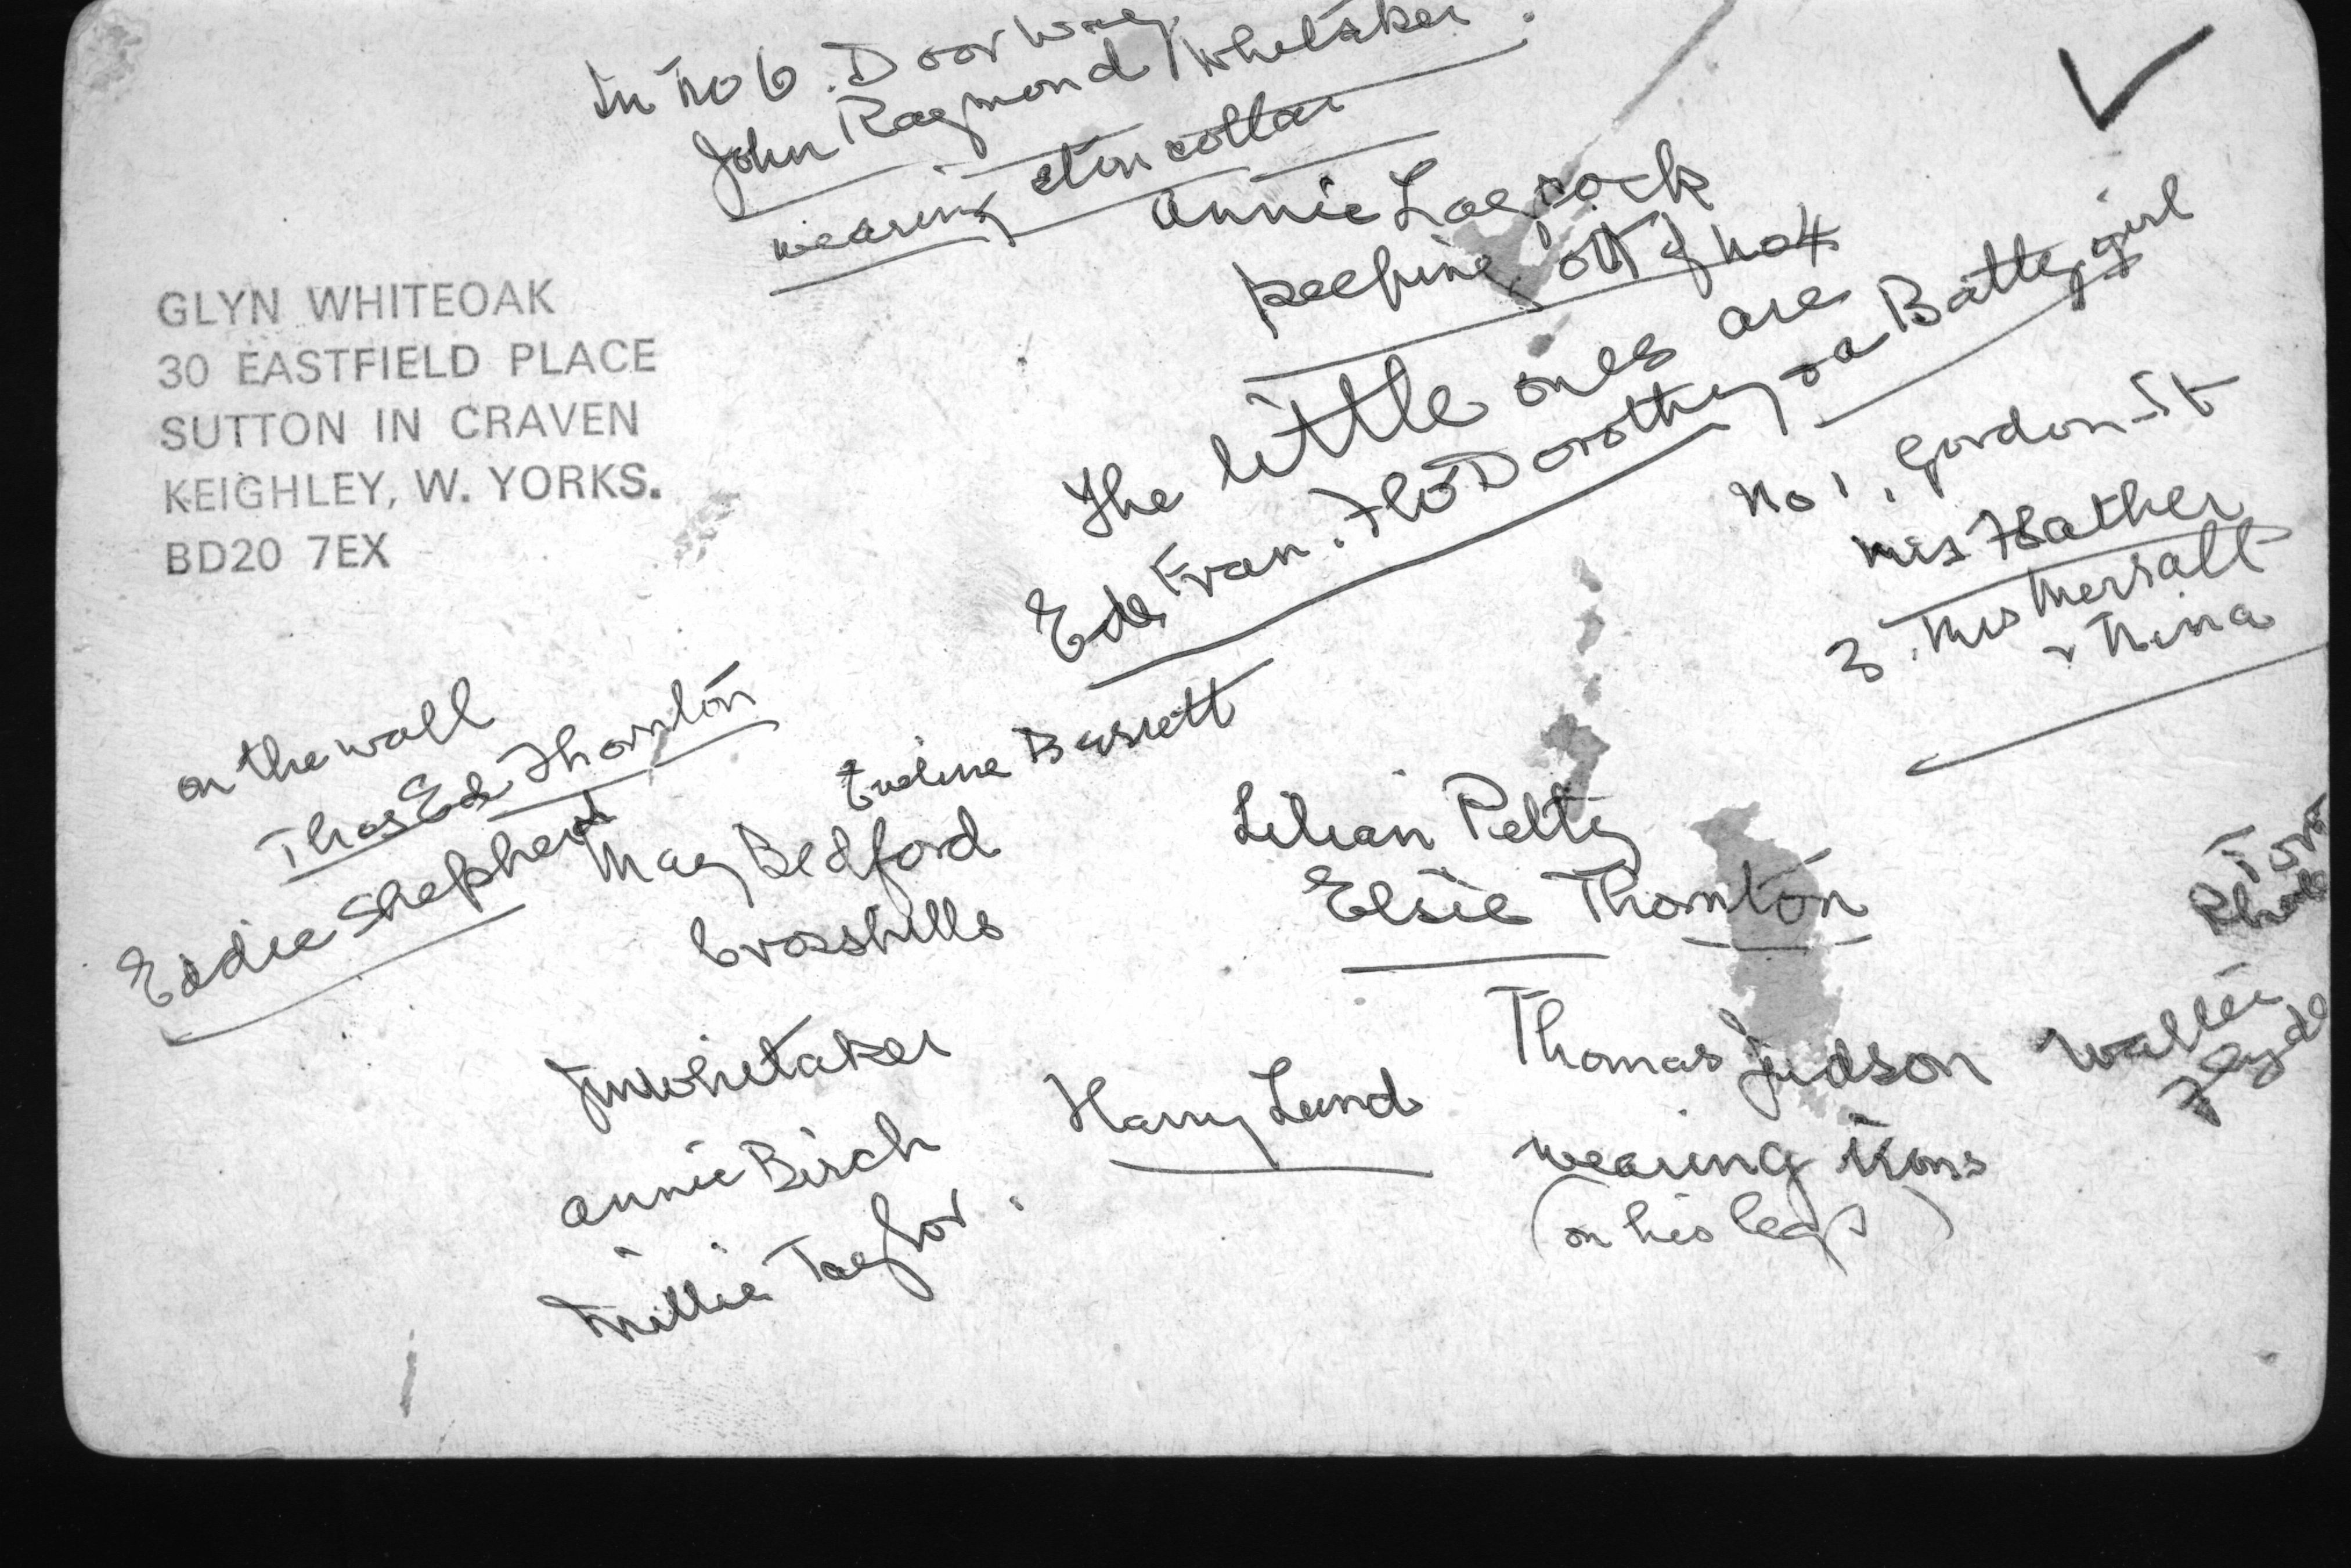 In No 6. Doorway
John Raymond Whitaker.
wearing eton collar
annie Laycock
keeping ott of No 4
The little ones are
Ede, Fran. Flo Dorothy, or a Battey girl
No 1, Gordon St
Mrs Hather
3. Mrs Mersall
+ Nina
GLYN WHITEOAK
30 EASTFIELD PLACE
SUTTON IN CRAVEN
KEIGHLEY, W. YORKS.
BD20 7EX
on the wall
Thos Ede Thornton
Eddie Shepherd
Eveline Barrett
May Bedford
Crosshills
Lilian Petty
Elsie Thornton
Tom
Jm Whitaker
annie Birch
Millie Taylor.
Harry Lund
Thomas Judson
wearing irons
(on his legs)
Walter